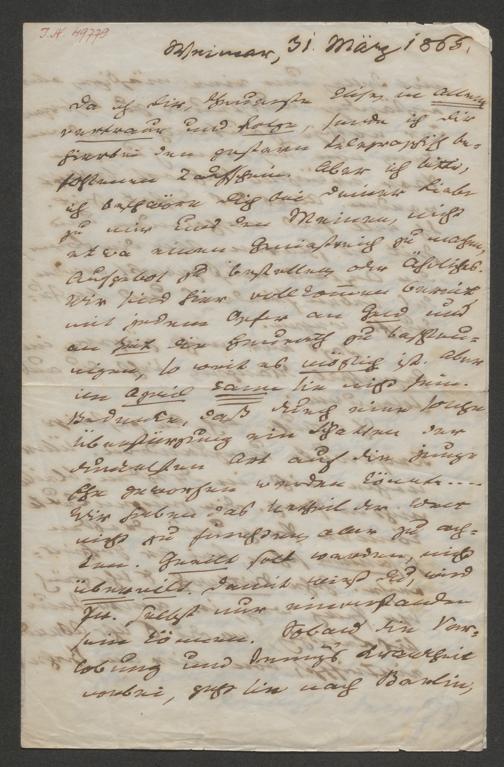 J.N. 49779
Weimar, 31 März 1865.
Da ich dir, theuerste Elise, in allem
vertraue und folge, sende ich dir
hierbei den gestern telegraphisch be-
fohlenen Taufschein. Aber ich bitte,
ich beschwöre dich bei deiner Liebe
zu mir und den Meinen, nicht
etwa einen Geniestreich zu machen,
Aufgebot zu bestellen oder Ähnliches.
Wir sind hier vollkommen bereit
mit jedem Opfer an Geld und
an Zeit die Heurath zu beschleu-
nigen, so weit es möglich ist. Aber
im April kann sie nicht sein.
Bedenke, daß durch eine solche
Überstürzung ein Schatten der
dunkelsten Art auf die junge
Ehe geworfen werden könnte....
Wir haben das Urtheil der Welt
nicht zu fürchten, aber zu ach-
ten. Geeilt soll werden, nicht
übereilt. Damit wirst du, wird
Fr. selbst nur einverstanden
sein können. Sobald die Ver-
lobung und Krankheit
vorbei, geht sie nach Berlin,